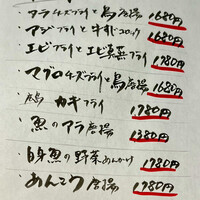 ・アラチーズフライと鳥唐揚 1680円
・アジフライと牛ヒコロッケ 1680円
・エビフライとエビ真蒸フライ 1780円
・マグロチーズフライと鳥唐揚
広島 カキフライ 1780円
・魚のアラ唐揚 1380円
・白身魚の野菜あんかけ 1780円
・あんこう唐揚 1980円